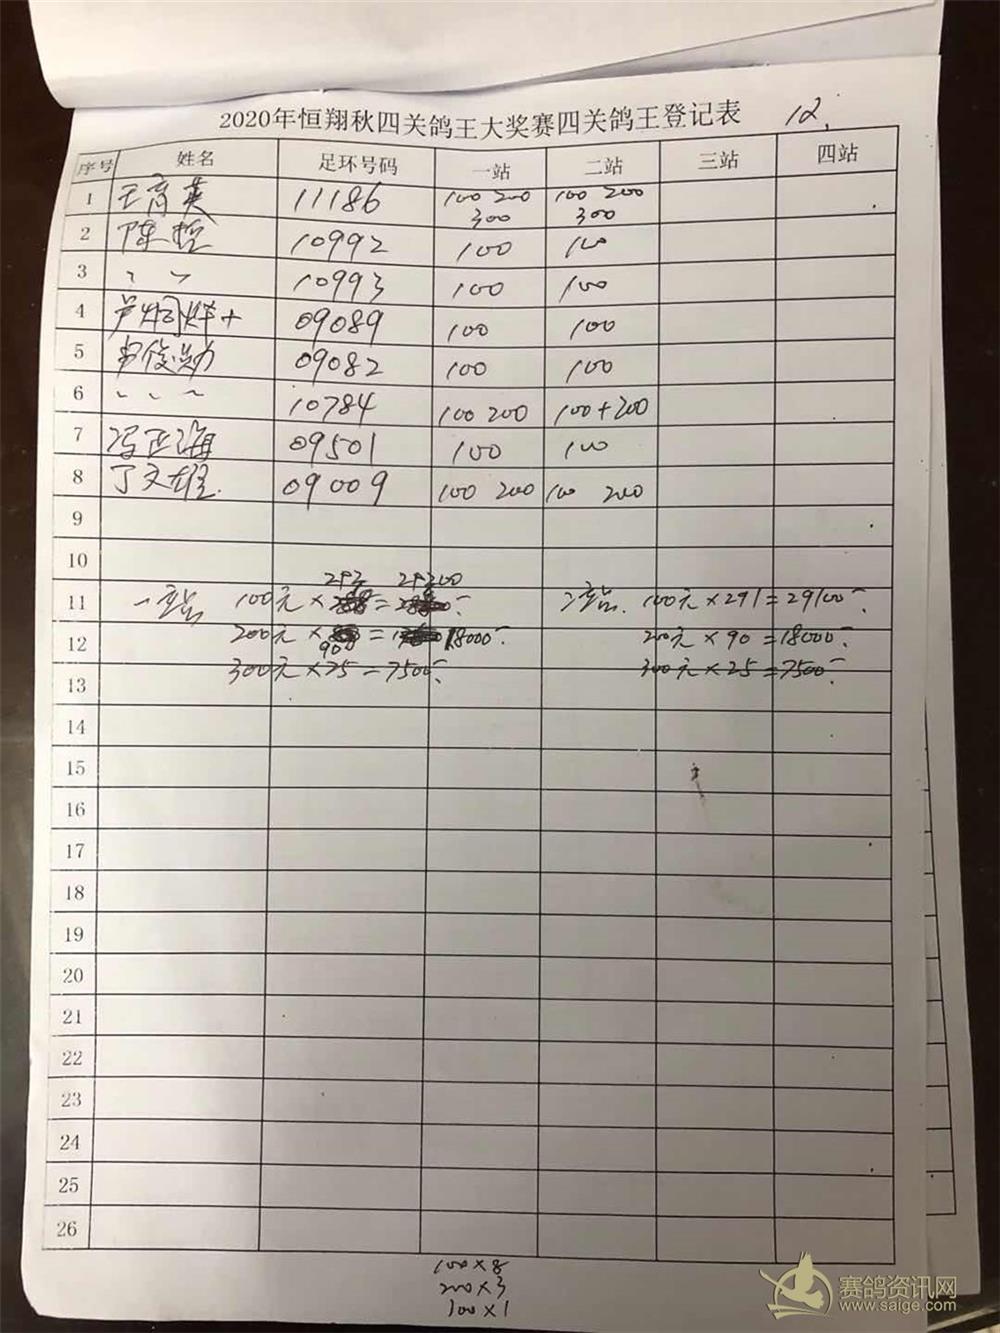 2020年恒翔秋四关鸽王大奖赛四关鸽王登记表 12.
序号 姓名 足环号码 一站 二站 三站 四站
1 王育英 11186 100 200 300 100 200 300
2 陈 10992 100 100
3 〃 〃 10993 100 100
4 09089 100 100
5 09082 100 100
6 〃 〃 〃 10784 100 200 100+200
7 冯正海 09501 100 100
8 丁文雄 09009 100 200 100 200
9
10
293 29300
11 一站 100元× = 二站 100元×291=29100
12 200元× = 18000 200元×90=18000
90
13 300元×25=7500 300元×25=7500
14
15
16
17
18
19
20
21
22
23
24
25
26
100×8
200×3
100×1
赛鸽资讯网
www.saige.com